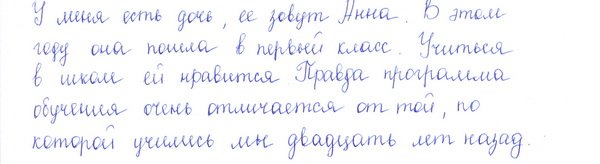 У меня есть дочь, ее зовут Анна. В этом
году она пошла в первый класс. Учиться
в школе ей нравится Правда программа
обучения очень отличается от той, по
которой учились мы двадцать лет назад.